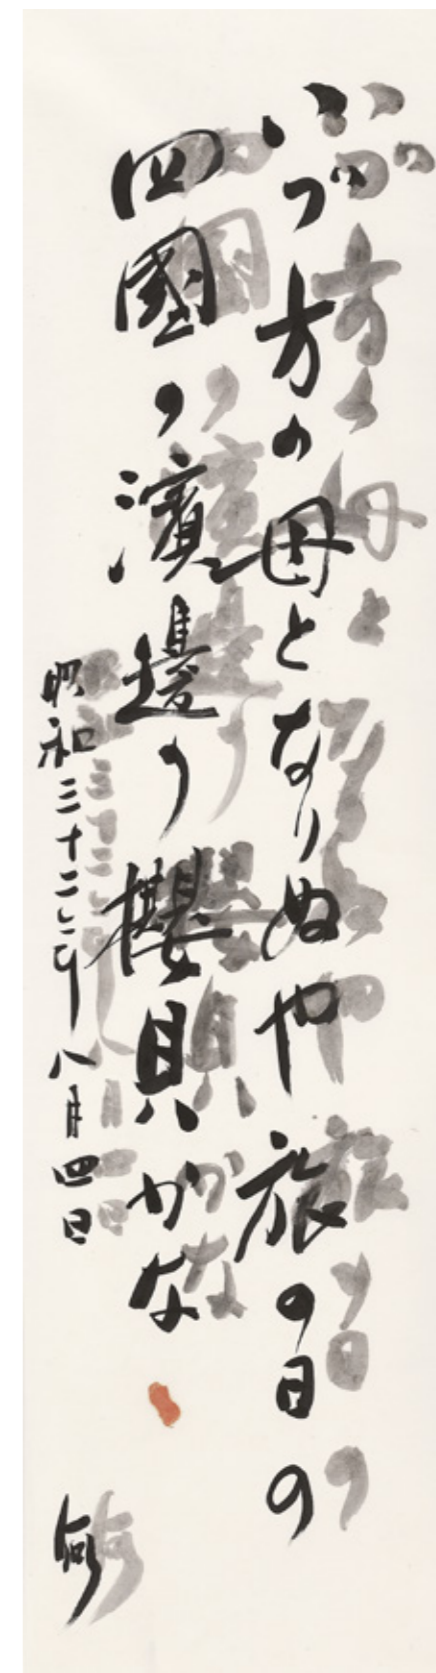 いづ方の母となりぬや旅の日の
四國の濱邊の櫻貝かな
昭和三十二年八月四日